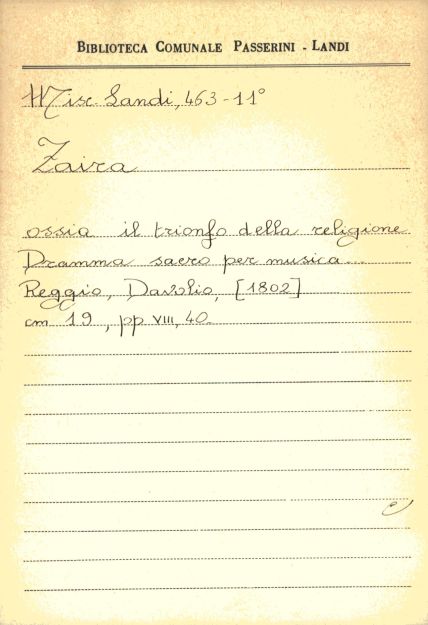 BIBLIOTECA COMUNALE PASSERINI - LANDI
Misc. Landi, 463-11°
Zaira
ossia il trionfo della religione
Dramma sacro per musica...
Reggio, Davolio, [1802]
cm 19, pp VIII, 40.